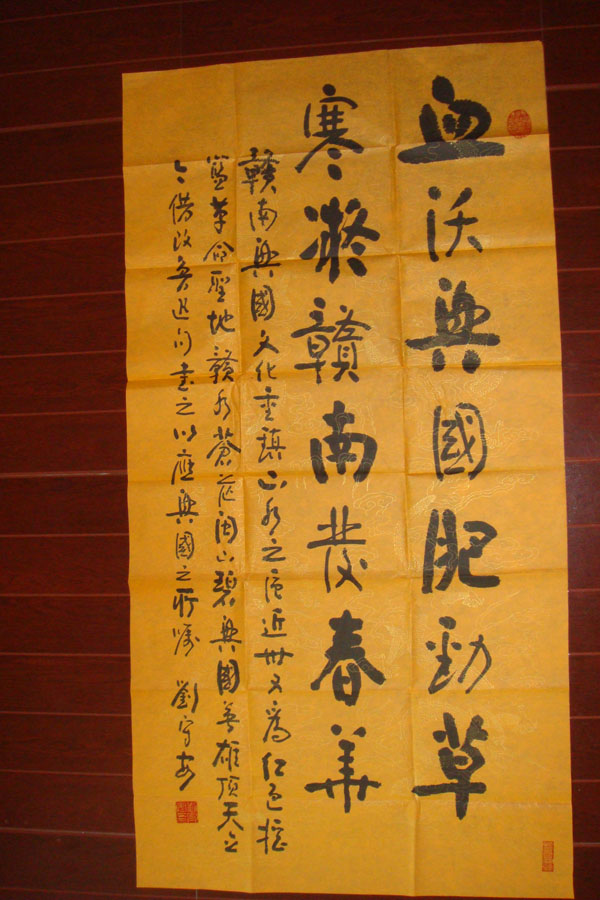 血沃興國肥勁草
寒凝贛南發春華
贛南興國文化重鎮山水之近世又為紅色搖
籃革命聖地贛水蒼茫閩山碧興國英雄頂天立
今借改魯迅句書之以應興國之所囑 劉守安